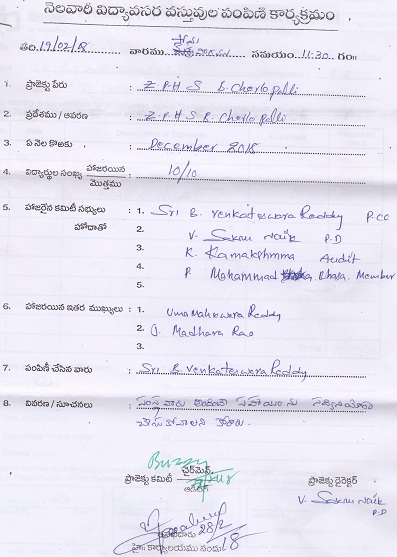 నెలవారి విద్యావసర వస్తువుల పంపిణి కార్యక్రమం
తేది. 19/02/18 వారము సోమ సమయం. 11:30 గం॥
1. ప్రాజెక్టు పేరు : Z P H S B. Cherlopalli
2. ప్రదేశము / ఆవరణ : Z. P. H S B. Cherlopalli
3. ఏ నెల కొఱకు : December 2018
4. విద్యార్థుల సంఖ్య హాజరయిన / మొత్తము : 10/10
5. హాజరైన కమిటీ సభ్యులు : 1. Sri B. Venkateswara Reddy P.CC
హోదాతో 2. V. Sakru Naik P.D
3. K. Kamakshmma Audit
4. P. Mohammad Bhasa. Member
5.
6. హాజరయిన ఇతర ముఖ్యులు : 1. Uma Maheswara Reddy
2. J. Madhava Rao
3.
7. పంపిణీ చేసిన వారు : Sri B Venkateswara Reddy
8. వివరణ / సూచనలు : సంస్థ వారు అందించే సహాయం ను సద్వినియోగం
చేసుకోవాలని కోరారు.
చైర్‌మెన్
ప్రాజెక్టు కమిటీ
ఆడిటర్
ప్రాజెక్టు డైరెక్టర్
V. Sakru Naik
P.D
28/2/18
కార్యాలయము నందు